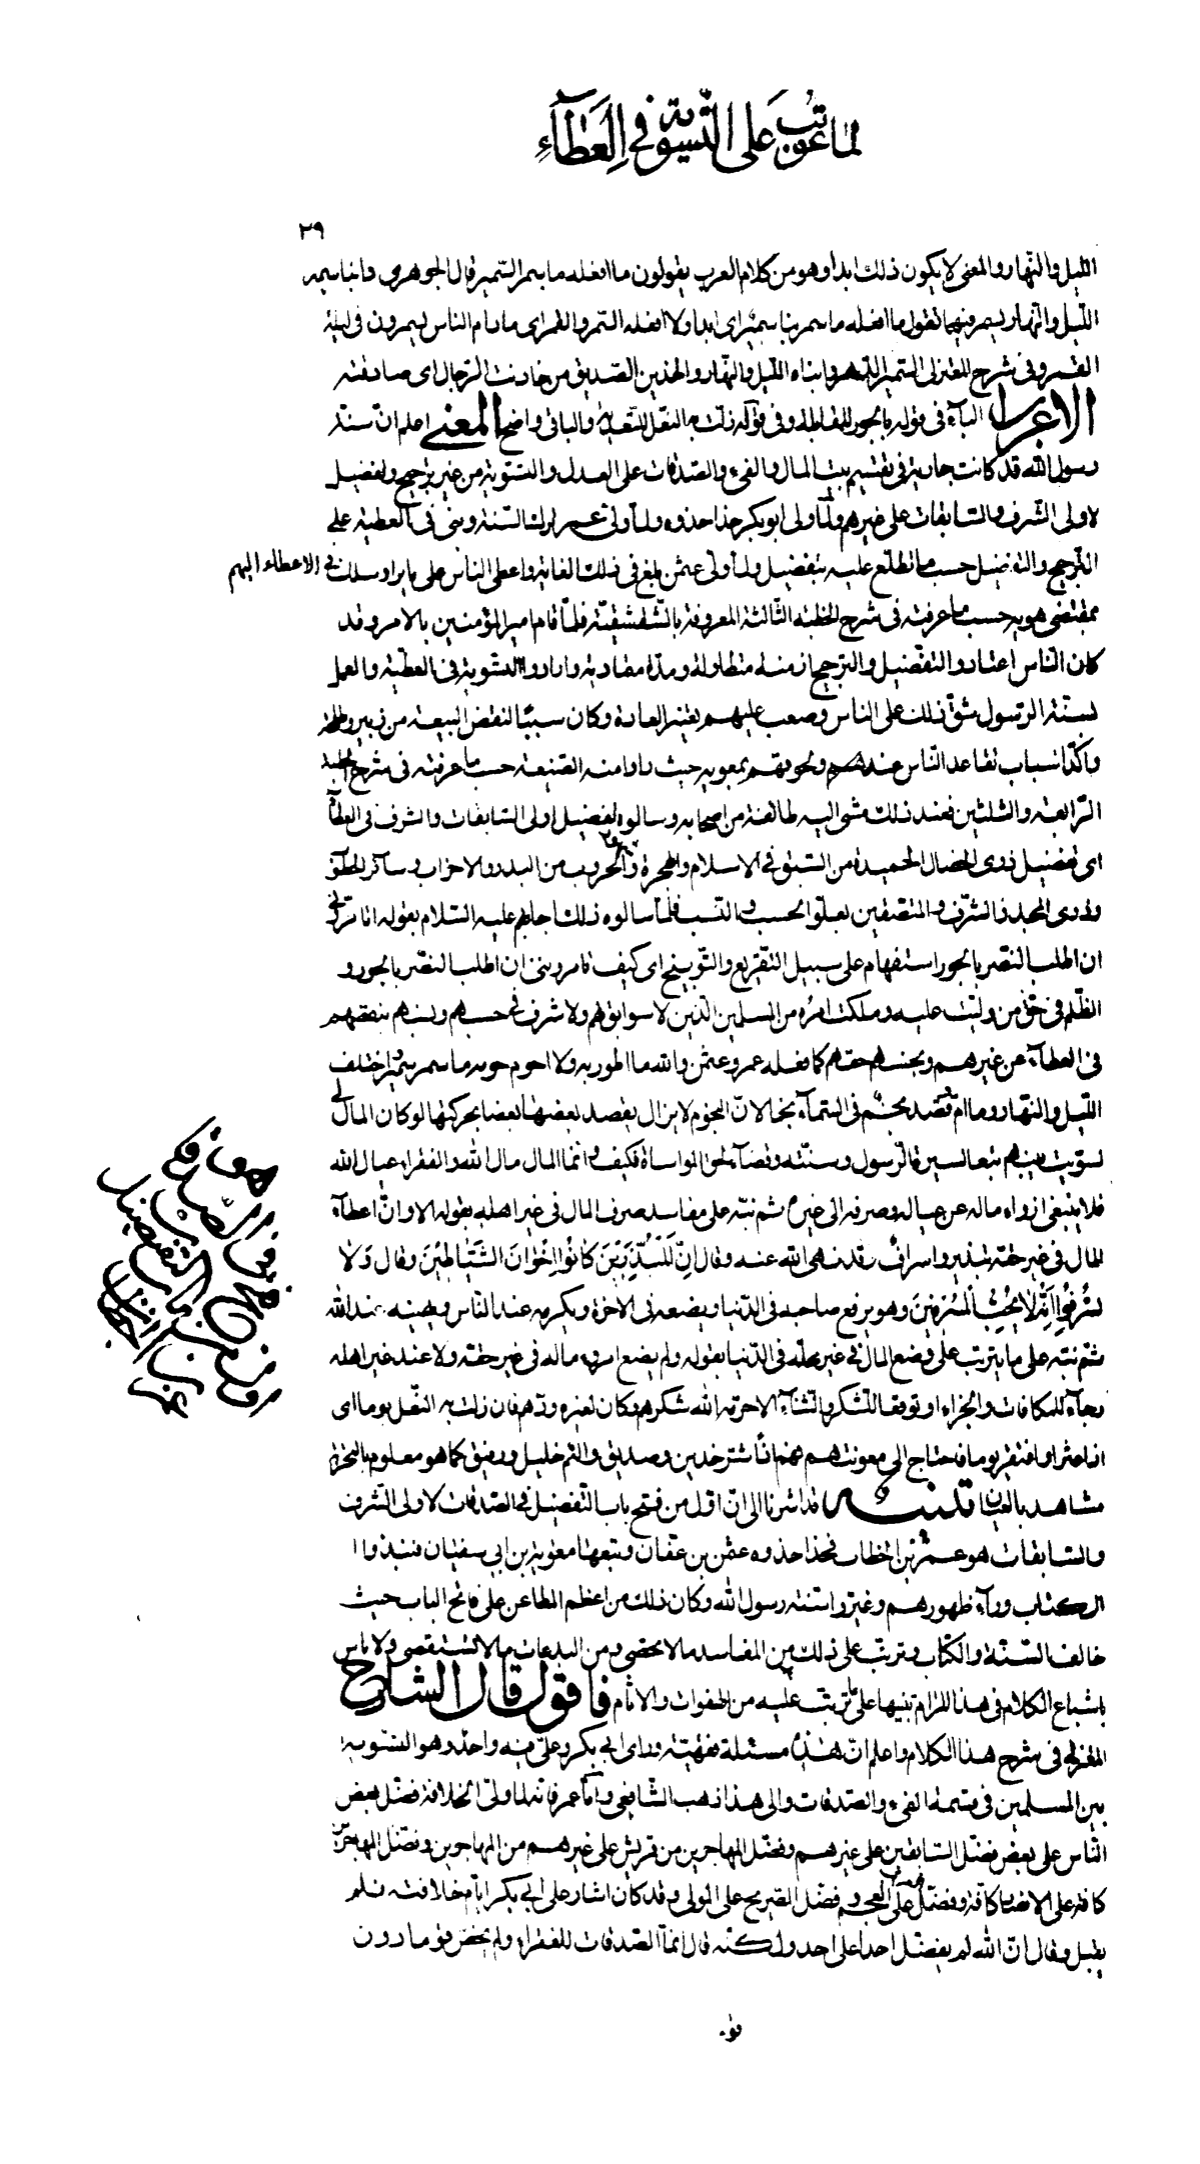 لما عوتب على التسوية في العطاء
٢٩
الليل والنهار والمعنى لا يكون ذلك ابدا وهو من كلام العرب يقولون ما افعله ما سمر السمير قال الجوهري وابنا سمير
الليل والنهار يسمر فيهما تقول ما افعله ما سمر ابنا سمير اى ابدا ولا افعله السمر والقمر اى مادام الناس يسمرون فى ليلة
القمر وفى شرح المعتزلى السمير الدهر وابناه الليل والنهار والخدين الصديق من خادنت الرجل اى صادقته
الاعراب الباء فى قوله بالجور للمقابلة وفى قوله زلت به النعل للتعدية والباقى واضح المعنى اعلم ان سنة
رسول الله قد كانت جارية فى تقسيم بيت المال والفىء والصدقات على العدل والتسوية من غير ترجيح وتفضيل
لاولى الشرف والسابقات على غيرهم ولما ولى ابو بكر حذا حذوه ولما ولى عمر ترك السنة وبنى فى العطية على
الترجيح والتفضيل حسب ما تطلع عليه بتفضيل ولما ولى عثمن بلغ فى ذلك الغاية واعطى الناس على ما يراه وسلك فى الاعطاء اليهم
بمقتضى هويه حسب ما عرفته فى شرح الخطبة الثالثة المعروفة بالشقشقية فلما قام امير المؤمنين بالامر وقد
كان الناس اعتادوا التفضيل والترجيح ازمنة متطاولة ومدة متمادية واراد التسوية فى العطية والعمل
بسنة الرسول شق ذلك على الناس وصعب عليهم تغيير العادة وكان سببا لنقض البيعة من زبير وطلحة
واكد اسباب تقاعد الناس عنه ولحوقهم بمعوية حيث راوا منه الصنيعة حسب ما عرفته فى شرح الخطبة
الرابعة والثلثين فعند ذلك مشى اليه طائفة من اصحابه وسالوه تفضيل اولى السابقات والشرف فى العطاء
اى تفضيل ذوى الخصال الحميدة من السبق فى الاسلام والهجرة والحروب من البدر والاحزاب وسائر
وذوى المجد والشرف والمتصفين بعلو الحسب والنسب فلما سالوه ذلك اجابهم عليه السلام بقوله اتامرونى
ان اطلب النصر بالجور استفهام على سبيل التقريع والتوبيخ اى كيف تامرونى ان اطلب النصر بالجور و
الظلم فى حق من وليت عليه وملكت امره من المسلمين الذين لا سوابق لهم ولا شرف فى حسبهم ونسبهم بنقصهم
فى العطاء عن غيرهم وبخسهم حقهم كما فعله عمر وعثمن والله ما اطور به ولا احوم حوله ما سمر سمير واختلف
الليل والنهار وما ام وقصد نجم فى السماء نجما لان النجوم لا يزال يقصد بعضها بعضا بحركتها لو كان المال لى
لسويت بينهم تبعا لسيرة الرسول وسنته وقضاء لحق المواساة فكيف وانما المال مال الله والفقراء عيال الله
فلا ينبغى ازواء ماله عن عياله وصرفه الى غيرهم ثم نبه على مفاسد صرف المال فى غير اهله بقوله الا وان اعطاء
المال فى غير حقه تبذير واسراف وقد نهى الله عنه وقال ان المبذرين كانوا اخوان الشياطين وقال ولا
تسرفوا ان الله لا يحب المسرفين وهو يرفع صاحبه فى الدنيا ويضعه فى الاخرة ويكرمه عند الناس ويهينه عند الله
ثم نبه على ما يترتب على وضع المال فى غير محله فى الدنيا بقوله ولم يضع امرء ماله فى غير حقه ولا عند غير اهله
رجاء للمكافات والجزاء او توقعا للشكر والثناء الا حرمه الله شكرهم وكان لغيره ودهم فان زلت به النعل يوما اى
اذا عثر او افتقر يوما فاحتاج الى معونتهم فهم شر خدين وصديق والئم خليل ورفيق كما هو معلوم بالتجربة
مشاهد بالعيان تنبيه قد اشرنا الى ان اول من فتح باب التفضيل فى الصدقات لاولى الشرف
والسابقات هو عمر بن الخطاب فحذا حذوه عثمن بن عفان وتبعها معوية بن ابى سفيان فنبذوا
الكتاب وراء ظهورهم وغيروا سنة رسول الله وكان ذلك من اعظم المطاعن على فاتح الباب حيث
خالف السنة والكتاب وترتب على ذلك من المفاسد ما لا يحصى ومن البدعات ما لا تستقصى ولا باس
باشباع الكلام فى هذا المرام تنبيها على ما ترتب عليه من الهفوات والاثام فاقول قال الشارح
المعتزلى فى شرح هذا الكلام واعلم ان هذه مسئلة فقهية وراى ابى بكر وعلى فيه واحد وهو التسوية
بين المسلمين فى قسمة الفىء والصدقات والى هذا ذهب الشافعى واما عمر فانه لما ولى الخلافة فضل بعض
الناس على بعض ففضل السابقين على غيرهم وفضل المهاجرين من قريش على غيرهم من المهاجرين وفضل المهاجرين
كافة على الانصار كافة وفضل العرب على العجم وفضل الصريح على المولى وقد كان اشار على ابى بكر ايام خلافته فلم
يقبل وقال ان الله لم يفضل احدا على احد ولكنه قال انما الصدقات للفقراء ولم يخص قوما دون
قو.